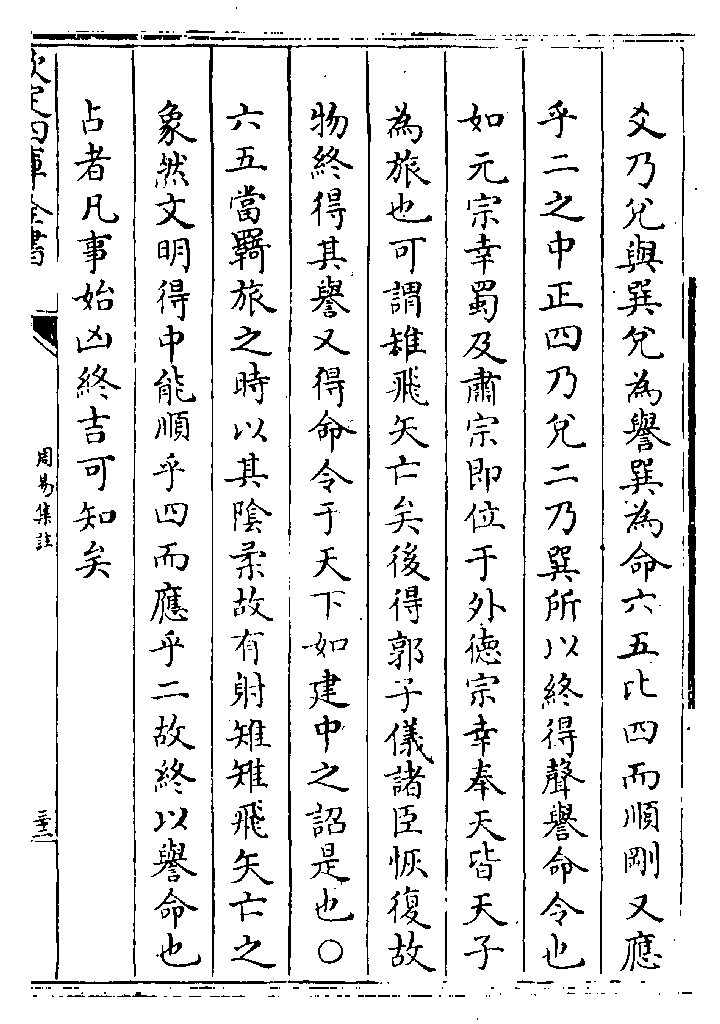 爻乃兌與巽兌為譽巽為命六五比四而順剛又應
乎二之中正四乃兌二乃巽所以終得聲譽命令也
如元宗幸蜀及肅宗即位于外德宗幸奉天皆天子
為旅也可謂雉飛矢亡矣後得郭子儀諸臣恢復故
物終得其譽又得命令于天下如建中之詔是也○
六五當羇旅之時以其陰柔故有射雉雉飛矢亡之
象然文明得中能順乎四而應乎二故終以譽命也
占者凡事始凶終吉可知矣
欽定四庫全書
周易集註